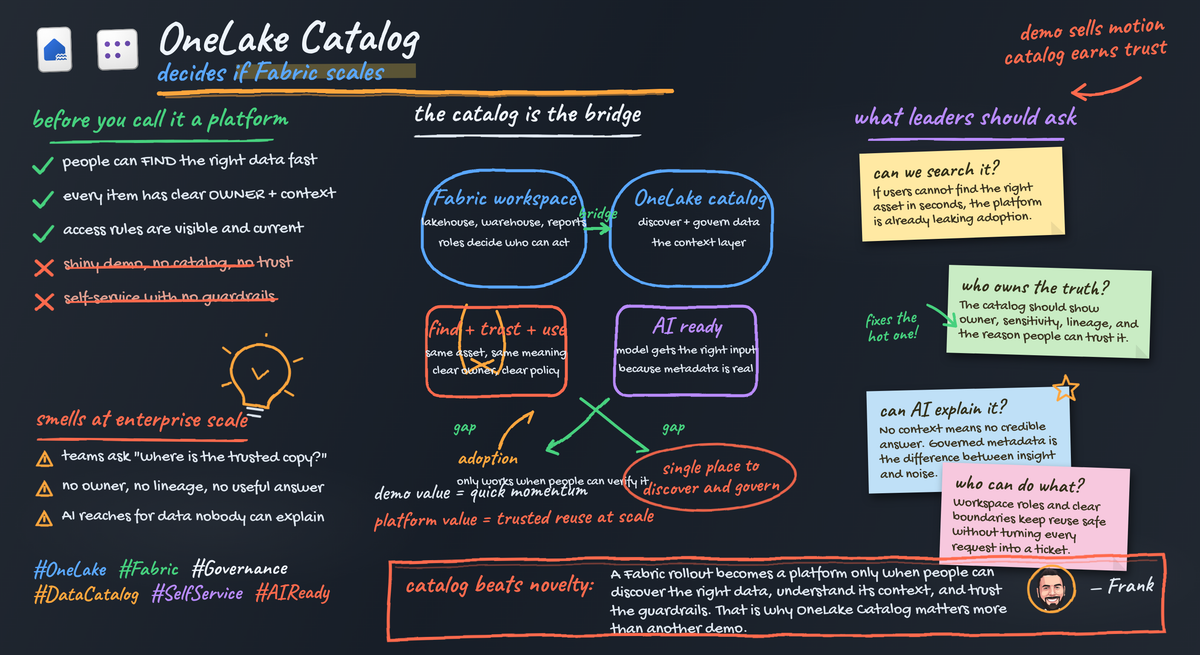 OneLake Catalog
decides if Fabric scales
demo sells motion
catalog earns trust
before you call it a platform
people can FIND the right data fast
every item has clear OWNER + context
access rules are visible and current
shiny demo, no catalog, no trust
self-service with no guardrails
smells at enterprise scale
teams ask "where is the trusted copy?"
no owner, no lineage, no useful answer
AI reaches for data nobody can explain
#OneLake #Fabric #Governance
#DataCatalog #SelfService #AIReady
the catalog is the bridge
Fabric workspace
lakehouse, warehouse, reports
roles decide who can act
bridge
OneLake catalog
discover + govern data
the context layer
find + trust + use
same asset, same meaning
clear owner, clear policy
AI ready
model gets the right input
because metadata is real
gap
gap
adoption
only works when people can verify it
single place to
discover and govern
demo value = quick momentum
platform value = trusted reuse at scale
what leaders should ask
can we search it?
If users cannot find the right
asset in seconds, the platform
is already leaking adoption.
fixes the
hot one!
who owns the truth?
The catalog should show
owner, sensitivity, lineage, and
the reason people can trust it.
can AI explain it?
No context means no credible
answer. Governed metadata is
the difference between insight
and noise.
who can do what?
Workspace roles and clear
boundaries keep reuse safe
without turning every
request into a ticket.
catalog beats novelty:
A Fabric rollout becomes a platform only when people can
discover the right data, understand its context, and trust
the guardrails. That is why OneLake Catalog matters more
than another demo.
— Frank